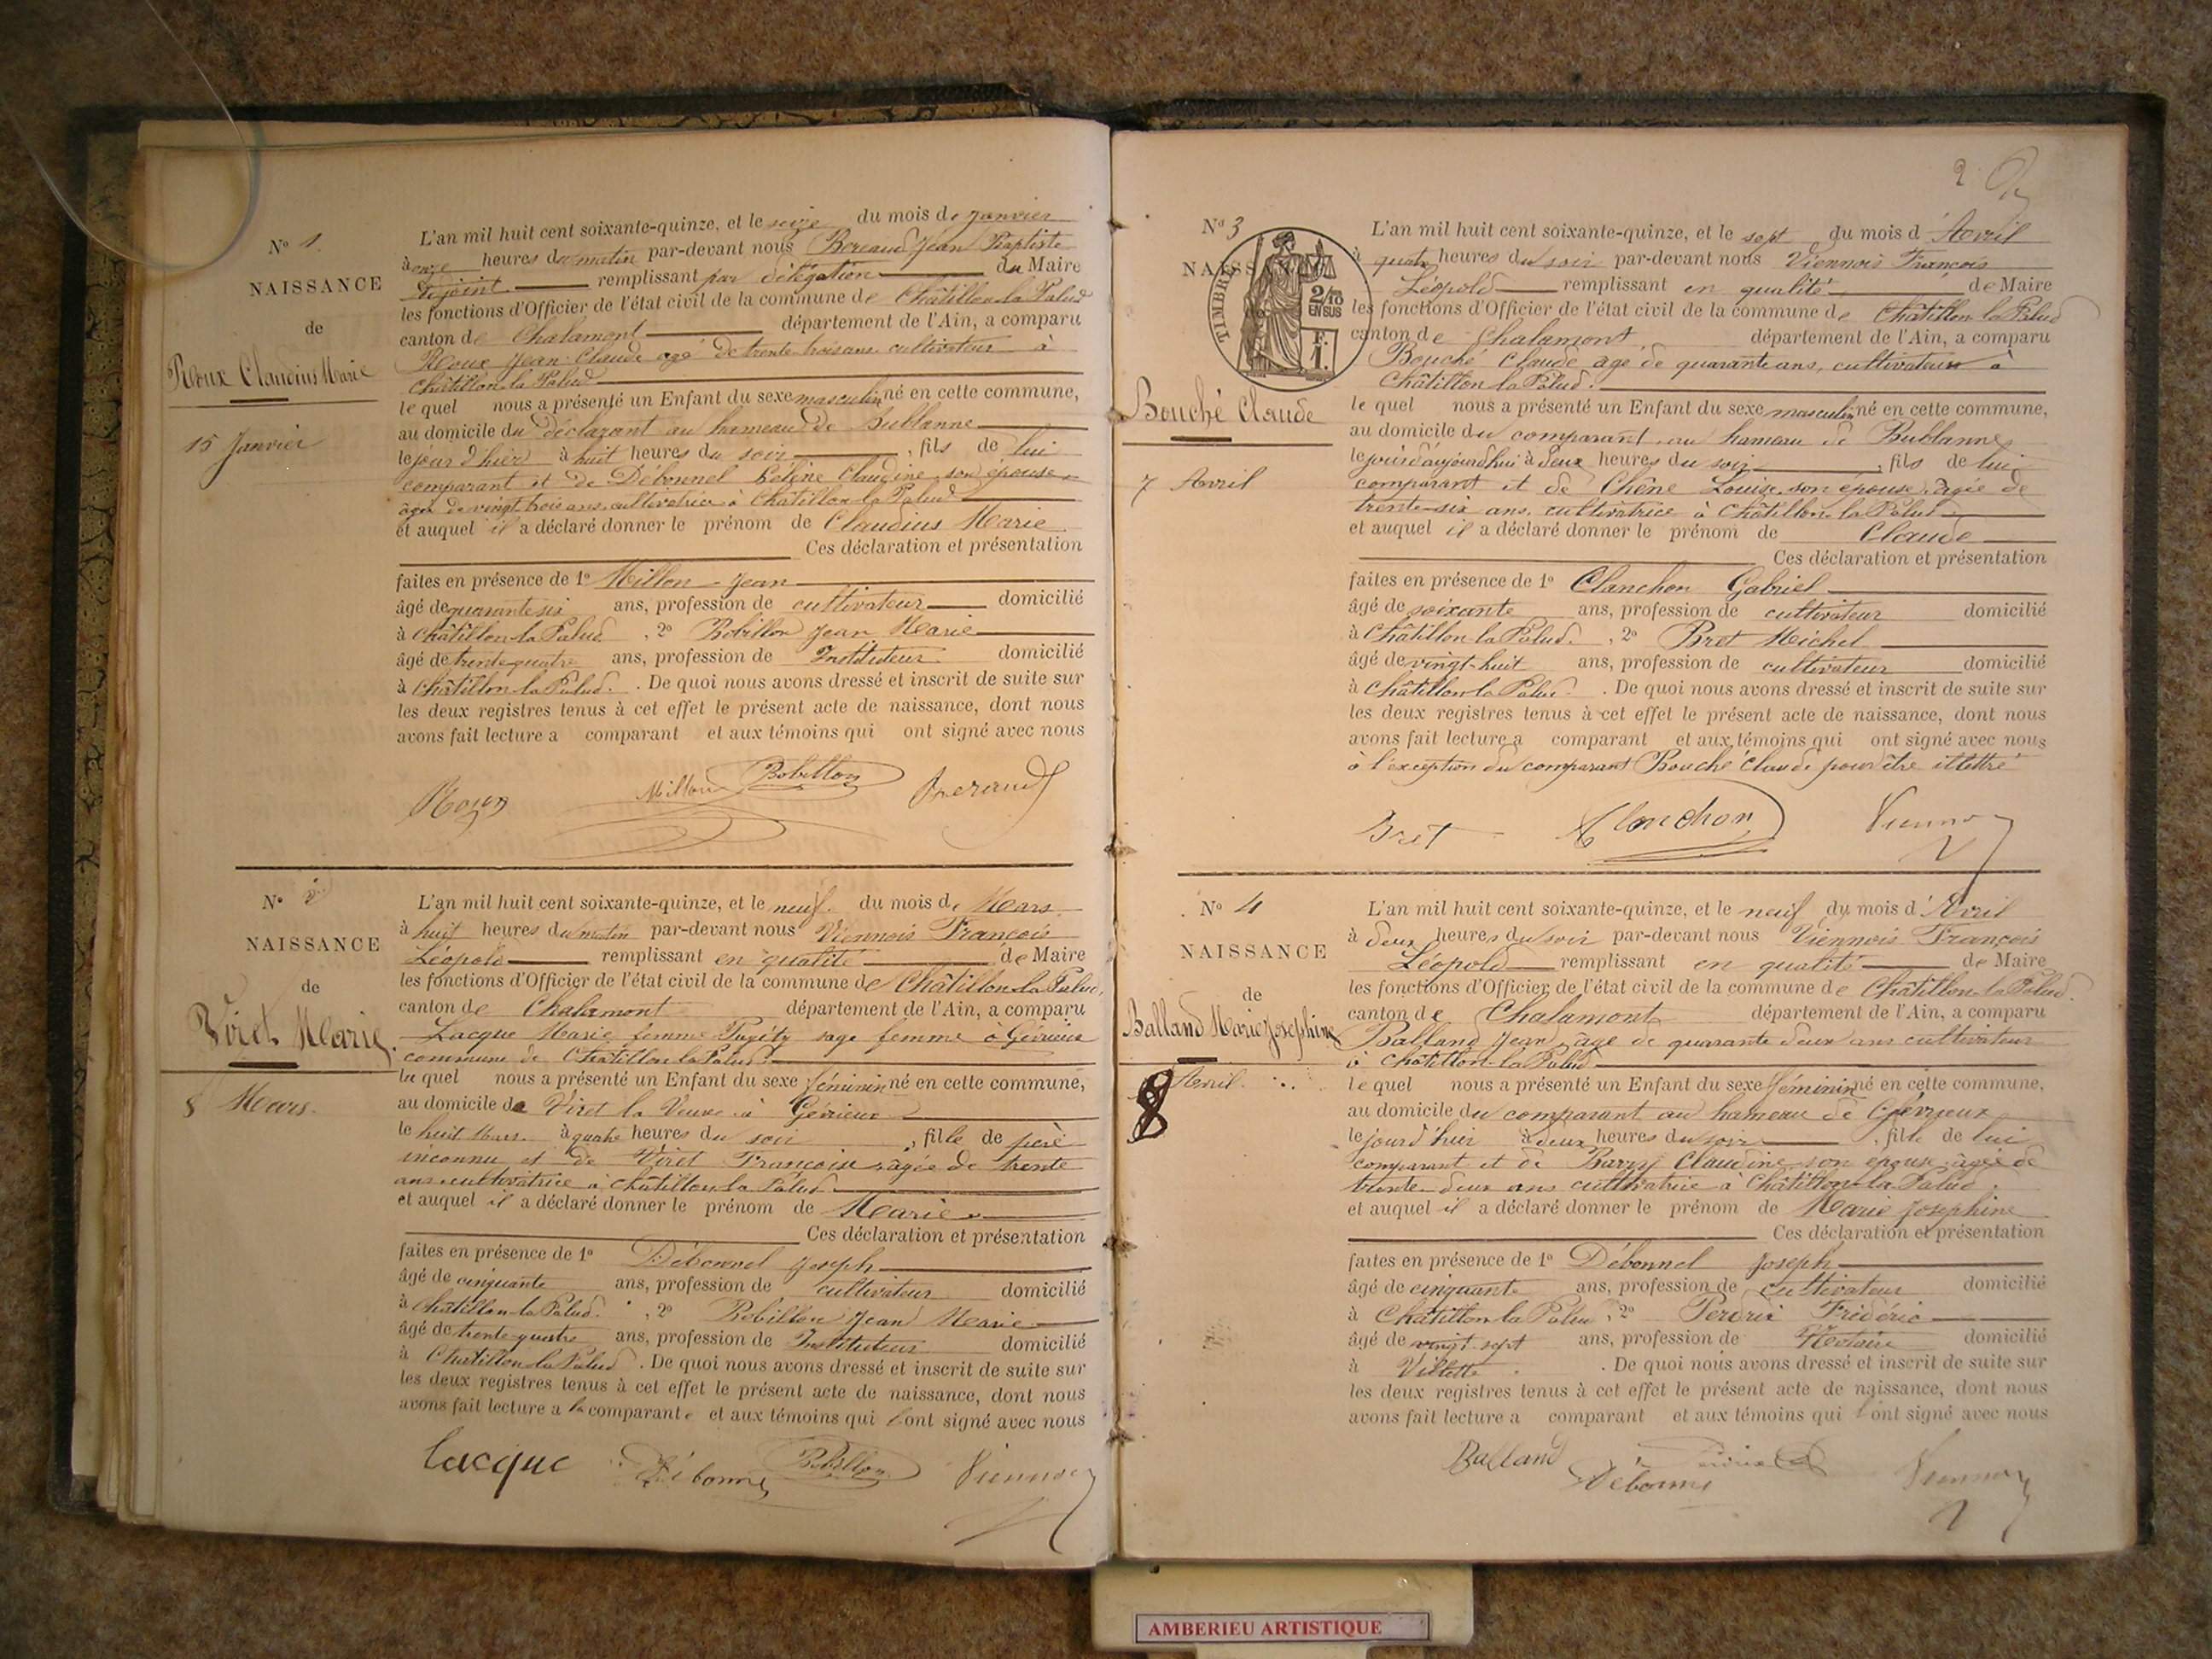 N° 1.
NAISSANCE
de
Roux Claudius Marie
15 Janvier
L'an mil huit cent soixante-quinze, et le seize du mois de Janvier
à onze heures du matin par-devant nous Jean Baptiste
adjoint remplissant par délégation du Maire
les fonctions d'Officier de l'état civil de la commune de Châtillon la Palud
canton de Chalamont département de l'Ain, a comparu
Roux Jean Claude agé de trente trois ans cultivateur à
Châtillon la Palud
le quel nous a présenté un Enfant du sexe masculin né en cette commune,
au domicile du déclarant au hameau de Bublanne
le jour d'hier à huit heures du soir, fils de lui
comparant et de Débonnel Claudine son épouse
agée de vingt trois ans cultivatrice à Châtillon la Palud
et auquel il a déclaré donner le prénom de Claudius Marie
Ces déclaration et présentation
faites en présence de 1° Millon Jean
âgé de quarante six ans, profession de cultivateur domicilié
à Châtillon la Palud, 2° Bobillon Jean Marie
âgé de trente quatre ans, profession de Instituteur domicilié
à Châtillon la Palud. De quoi nous avons dressé et inscrit de suite sur
les deux registres tenus à cet effet le présent acte de naissance, dont nous
avons fait lecture a comparant et aux témoins qui ont signé avec nous
Roux Millon Bobillon
N° 2
NAISSANCE
de
Viret Marie
8 Mars.
L'an mil huit cent soixante-quinze, et le neuf du mois de Mars
à huit heures du matin par-devant nous Viennois François
Léopold remplissant en qualité de Maire
les fonctions d'Officier de l'état civil de la commune de Châtillon la Palud,
canton de Chalamont département de l'Ain, a comparu
Lacque Marie femme sage femme à Gévrieux
commune de Châtillon la Palud
la quel nous a présenté un Enfant du sexe féminin né en cette commune,
au domicile de Viret la Veuve à Gévrieux
le huit Mars à quatre heures du soir, fille de père
inconnu et de Viret Françoise, âgée de trente
ans cultivatrice à Châtillon la Palud
et auquel il a déclaré donner le prénom de Marie
Ces déclaration et présentation
faites en présence de 1° Débonnel Joseph
âgé de cinquante ans, profession de cultivateur domicilié
à Châtillon la Palud., 2° Bobillon Jean Marie
âgé de trente quatre ans, profession de Instituteur domicilié
à Châtillon la Palud. De quoi nous avons dressé et inscrit de suite sur
les deux registres tenus à cet effet le présent acte de naissance, dont nous
avons fait lecture a la comparante et aux témoins qui l'ont signé avec nous
Lacque Débonnel Bobillon Viennois
2
N° 3
NAISSANCE
TIMBRE
2/10
EN SUS
F.
1.
Bouché Claude
7 Avril
L'an mil huit cent soixante-quinze, et le sept du mois d'Avril
à quatre heures du soir par-devant nous Viennois François
Léopold remplissant en qualité de Maire
les fonctions d'Officier de l'état civil de la commune de Châtillon la Palud
canton de Chalamont département de l'Ain, a comparu
Bouché Claude agé de quarante ans, cultivateur à
Châtillon la Palud.
le quel nous a présenté un Enfant du sexe masculin né en cette commune,
au domicile du comparant au hameau de Bublanne
le jourd'aujourd'hui à deux heures du soir, fils de lui
comparant et de Chêne Louise son épouse, agée de
trente-six ans, cultivatrice à Châtillon la Palud
et auquel il a déclaré donner le prénom de Claude
Ces déclaration et présentation
faites en présence de 1° Clanchon Gabriel
âgé de soixante ans, profession de cultivateur domicilié
à Châtillon la Palud., 2° Bret Michel
âgé de vingt-huit ans, profession de cultivateur domicilié
à Châtillon la Palud. De quoi nous avons dressé et inscrit de suite sur
les deux registres tenus à cet effet le présent acte de naissance, dont nous
avons fait lecture a comparant et aux témoins qui ont signé avec nous
à l'exception du comparant Bouché Claude pour être illettré
Bret Clanchon Viennois
N° 4
NAISSANCE
de
Balland Marie Josephine
8 Avril
L'an mil huit cent soixante-quinze, et le neuf du mois d'Avril
à deux heures du soir par-devant nous Viennois François
Léopold remplissant en qualité de Maire
les fonctions d'Officier de l'état civil de la commune de Châtillon la Palud.
canton de Chalamont département de l'Ain, a comparu
Balland Jean, agé de quarante deux ans cultivateur
à Châtillon la Palud
le quel nous a présenté un Enfant du sexe féminin né en cette commune,
au domicile du comparant au hameau de Gévrieux
le jour d'hier à deux heures du soir, fille de lui
comparant et de Claudine son épouse, agée de
trente deux ans cultivatrice à Châtillon la Palud
et auquel il a déclaré donner le prénom de Marie Josephine
Ces déclaration et présentation
faites en présence de 1° Débonnel Joseph
âgé de cinquante ans, profession de cultivateur domicilié
à Châtillon la Palud, 2° Perdrix Frédéric
âgé de vingt sept ans, profession de Notaire domicilié
à Villette. De quoi nous avons dressé et inscrit de suite sur
les deux registres tenus à cet effet le présent acte de naissance, dont nous
avons fait lecture a comparant et aux témoins qui l'ont signé avec nous
Balland Débonnel Viennois
AMBERIEU ARTISTIQUE